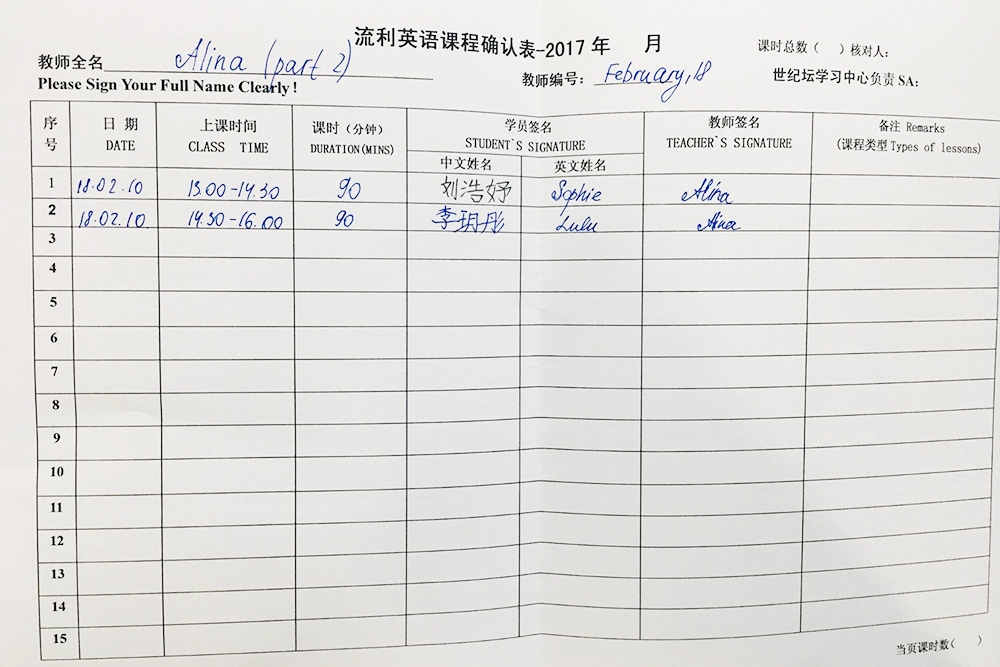 流利英语课程确认表-2017 年 月
课时总数（ ）核对人：
教师全名 Alina (part 2)
教师编号： February, 18
世纪坛学习中心负责 SA：
Please Sign Your Full Name Clearly !
序号 日 期 DATE 上课时间 CLASS TIME 课时（分钟） DURATION(MINS) 学员签名 STUDENT`S SIGNATURE 教师签名 TEACHER`S SIGNATURE 备注 Remarks (课程类型 Types of lessons)
中文姓名 英文姓名
1 18.02.10 13.00-14.30 90 刘浩妤 Sophie Alina
2 18.02.10. 14.30-16.00 90 李玥彤 Lulu Alina
3
4
5
6
7
8
9
10
11
12
13
14
15
当页课时数（ ）